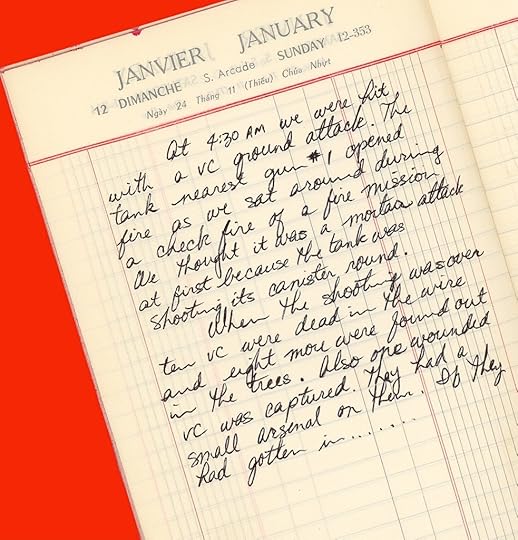 JANVIER JANUARY
12 DIMANCHE S. Arcade SUNDAY 12-353
Ngày 24 Tháng 11 (Thiếu) Chúa Nhựt
At 4:30 AM we were hit
with a VC ground attack. The
tank nearest gun #1 opened
fire as we sat around during
a check fire of a fire mission.
We thought it was a mortar attack
at first because the tank was
shooting its canister round.
When the shooting was over
ten VC were dead in the wire
and eight more were found out
in the trees. Also one wounded
VC was captured. They had a
small arsenal on them. If they
had gotten in.......